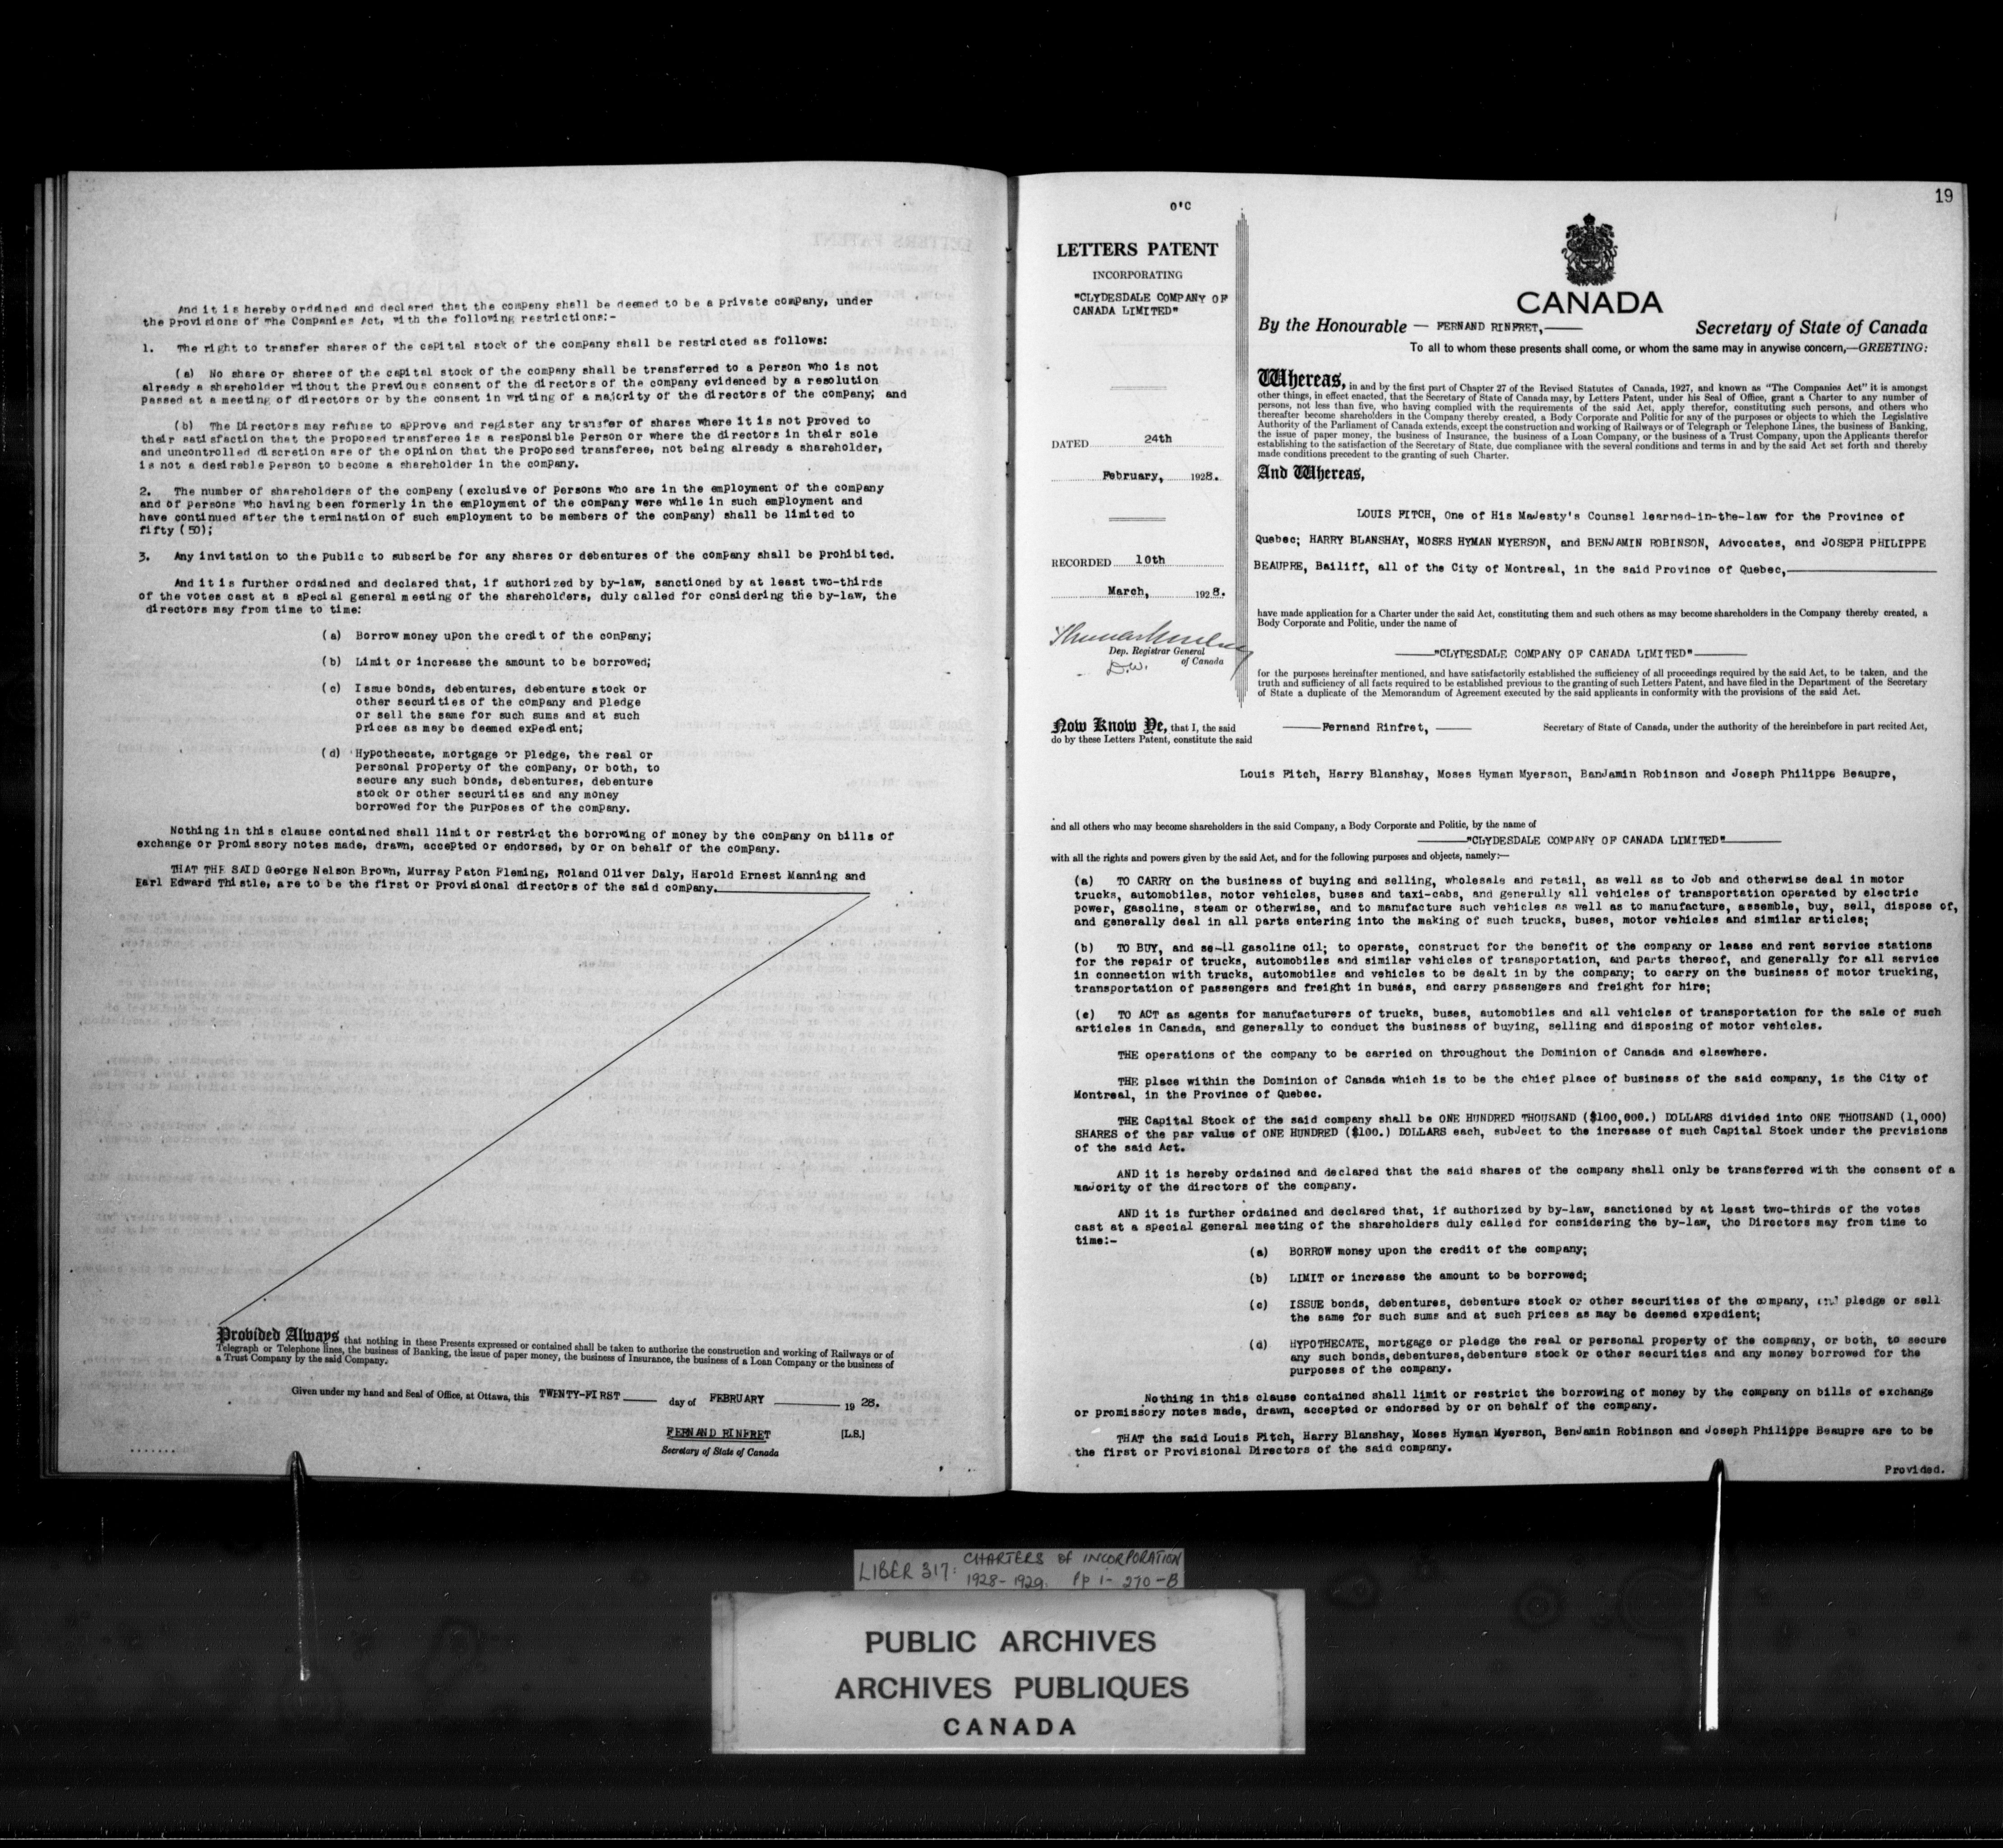 And it is hereby ordained and declared that the company shall be deemed to be a private company, under
the Provisions of The Companies Act, with the following restrictions:-
1. The right to transfer shares of the capital stock of the company shall be restricted as follows:
(a) No share or shares of the capital stock of the company shall be transferred to a Person who is not
already a shareholder without the Previous consent of the directors of the company evidenced by a resolution
Passed at a meeting of directors or by the consent in writing of a majority of the directors of the company; and
(b) The Directors may refuse to approve and register any transfer of shares where it is not Proved to
their satisfaction that the proposed transferee is a responsible Person or where the directors in their sole
and uncontrolled discretion are of the opinion that the Proposed transferee, not being already a shareholder,
is not a desirable Person to become a shareholder in the company.
2. The number of shareholders of the company (exclusive of Persons who are in the employment of the company
and of Persons who having been formerly in the employment of the company were while in such employment and
have continued after the termination of such employment to be members of the company) shall be limited to
fifty (50);
3. Any invitation to the Public to subscribe for any shares or debentures of the company shall be Prohibited.
And it is further ordained and declared that, if authorized by by-law, sanctioned by at least two-thirds
of the votes cast at a special general meeting of the shareholders, duly called for considering the by-law, the
directors may from time to time:
(a) Borrow money upon the credit of the company;
(b) Limit or increase the amount to be borrowed;
(c) Issue bonds, debentures, debenture stock or
other securities of the company and Pledge
or sell the same for such sums and at such
Prices as may be deemed expedient;
(d) Hypothecate, mortgage or Pledge, the real or
personal property of the company, or both, to
secure any such bonds, debentures, debenture
stock or other securities and any money
borrowed for the Purposes of the company.
Nothing in this clause contained shall limit or restrict the borrowing of money by the company on bills of
exchange or Promissory notes made, drawn, accepted or endorsed, by or on behalf of the company.
THAT THE SAID George Nelson Brown, Murray Paton Fleming, Roland Oliver Daly, Harold Ernest Manning and
Earl Edward Thistle, are to be the first or Provisional directors of the said company.
Provided Always that nothing in these Presents expressed or contained shall be taken to authorize the construction and working of Railways or of
Telegraph or Telephone lines, the business of Banking, the issue of paper money, the business of Insurance, the business of a Loan Company or the business of
a Trust Company by the said Company.
Given under my hand and Seal of Office, at Ottawa, this TWENTY-FIRST day of FEBRUARY 19 28.
FERNAND RINFRET [L.S.]
Secretary of State of Canada
.......
19
O'C
LETTERS PATENT
INCORPORATING
"CLYDESDALE COMPANY OF
CANADA LIMITED"
DATED 24th
February, 1928.
RECORDED 10th
March, 1928.
Dep. Registrar General
of Canada
D.W.
CANADA
By the Honourable — FERNAND RINFRET,— Secretary of State of Canada
To all to whom these presents shall come, or whom the same may in anywise concern,—GREETING:
Whereas, in and by the first part of Chapter 27 of the Revised Statutes of Canada, 1927, and known as "The Companies Act" it is amongst
other things, in effect enacted, that the Secretary of State of Canada may, by Letters Patent, under his Seal of Office, grant a Charter to any number of
persons, not less than five, who having complied with the requirements of the said Act, apply therefor, constituting such persons, and others who
thereafter become shareholders in the Company thereby created, a Body Corporate and Politic for any of the purposes or objects to which the Legislative
Authority of the Parliament of Canada extends, except the construction and working of Railways or of Telegraph or Telephone Lines, the business of Banking,
the issue of paper money, the business of Insurance, the business of a Loan Company, or the business of a Trust Company, upon the Applicants therefor
establishing to the satisfaction of the Secretary of State, due compliance with the several conditions and terms in and by the said Act set forth and thereby
made conditions precedent to the granting of such Charter.
And Whereas,
LOUIS FITCH, One of His MaJesty's Counsel learned-in-the-law for the Province of
Quebec; HARRY BLANSHAY, MOSES HYMAN MYERSON, and BENJAMIN ROBINSON, Advocates, and JOSEPH PHILIPPE
BEAUPRE, Bailiff, all of the City of Montreal, in the said Province of Quebec,
have made application for a Charter under the said Act, constituting them and such others as may become shareholders in the Company thereby created, a
Body Corporate and Politic, under the name of
"CLYDESDALE COMPANY OF CANADA LIMITED"
for the purposes hereinafter mentioned, and have satisfactorily established the sufficiency of all proceedings required by the said Act, to be taken, and the
truth and sufficiency of all facts required to be established previous to the granting of such Letters Patent, and have filed in the Department of the Secretary
of State a duplicate of the Memorandum of Agreement executed by the said applicants in conformity with the provisions of the said Act.
Now Know Ye, that I, the said — Fernand Rinfret, — Secretary of State of Canada, under the authority of the hereinbefore in part recited Act,
do by these Letters Patent, constitute the said
Louis Fitch, Harry Blanshay, Moses Hyman Myerson, BanJamin Robinson and Joseph Philippe Beaupre,
and all others who may become shareholders in the said Company, a Body Corporate and Politic, by the name of
"CLYDESDALE COMPANY OF CANADA LIMITED"
with all the rights and powers given by the said Act, and for the following purposes and objects, namely:—
(a) TO CARRY on the business of buying and selling, wholesale and retail, as well as to Job and otherwise deal in motor
trucks, automobiles, motor vehicles, buses and taxi-cabs, and generally all vehicles of transportation operated by electric
power, gasoline, steam or otherwise, and to manufacture such vehicles as well as to manufacture, assemble, buy, sell, dispose of,
and generally deal in all parts entering into the making of such trucks, buses, motor vehicles and similar articles;
(b) TO BUY, and se-ll gasoline oil; to operate, construct for the benefit of the company or lease and rent service stations
for the repair of trucks, automobiles and similar vehicles of transportation, and parts thereof, and generally for all service
in connection with trucks, automobiles and vehicles to be dealt in by the company; to carry on the business of motor trucking,
transportation of passengers and freight in buses, and carry passengers and freight for hire;
(c) TO ACT as agents for manufacturers of trucks, buses, automobiles and all vehicles of transportation for the sale of such
articles in Canada, and generally to conduct the business of buying, selling and disposing of motor vehicles.
THE operations of the company to be carried on throughout the Dominion of Canada and elsewhere.
THE place within the Dominion of Canada which is to be the chief place of business of the said company, is the City of
Montreal, in the Province of Quebec.
THE Capital Stock of the said company shall be ONE HUNDRED THOUSAND ($100,000.) DOLLARS divided into ONE THOUSAND (1,000)
SHARES of the par value of ONE HUNDRED ($100.) DOLLARS each, subJect to the increase of such Capital Stock under the provisions
of the said Act.
AND it is hereby ordained and declared that the said shares of the company shall only be transferred with the consent of a
maJority of the directors of the company.
AND it is further ordained and declared that, if authorized by by-law, sanctioned by at least two-thirds of the votes
cast at a special general meeting of the shareholders duly called for considering the by-law, the Directors may from time to
time:-
(a) BORROW money upon the credit of the company;
(b) LIMIT or increase the amount to be borrowed;
(c) ISSUE bonds, debentures, debenture stock or other securities of the company, and pledge or sell
the same for such sums and at such prices as may be deemed expedient;
(d) HYPOTHECATE, mortgage or pledge the real or personal property of the company, or both, to secure
any such bonds, debentures, debenture stock or other securities and any money borrowed for the
purposes of the company.
Nothing in this clause contained shall limit or restrict the borrowing of money by the company on bills of exchange
or promissory notes made, drawn, accepted or endorsed by or on behalf of the company.
THAT the said Louis Fitch, Harry Blanshay, Moses Hyman Myerson, BenJamin Robinson and Joseph Philippe Beaupre are to be
the first or Provisional Directors of the said company.
Provided.
LIBER 317: CHARTERS of INCORPORATION
1928-1929. Pp 1- 270-B
PUBLIC ARCHIVES
ARCHIVES PUBLIQUES
CANADA